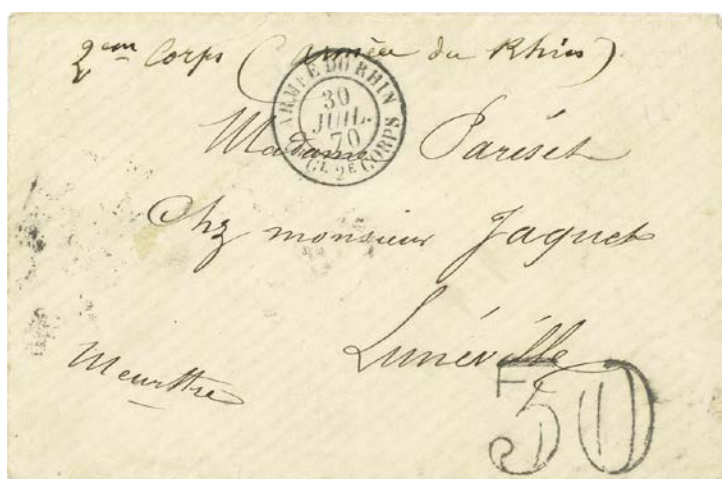 2em Corps (Armée du Rhin)
ARMÉE DU RHIN
30
JUIL.
70
GL 2E CORPS
Madame Pariset
Chz monsieur Jaquet
Lunéville
Meurthe
30